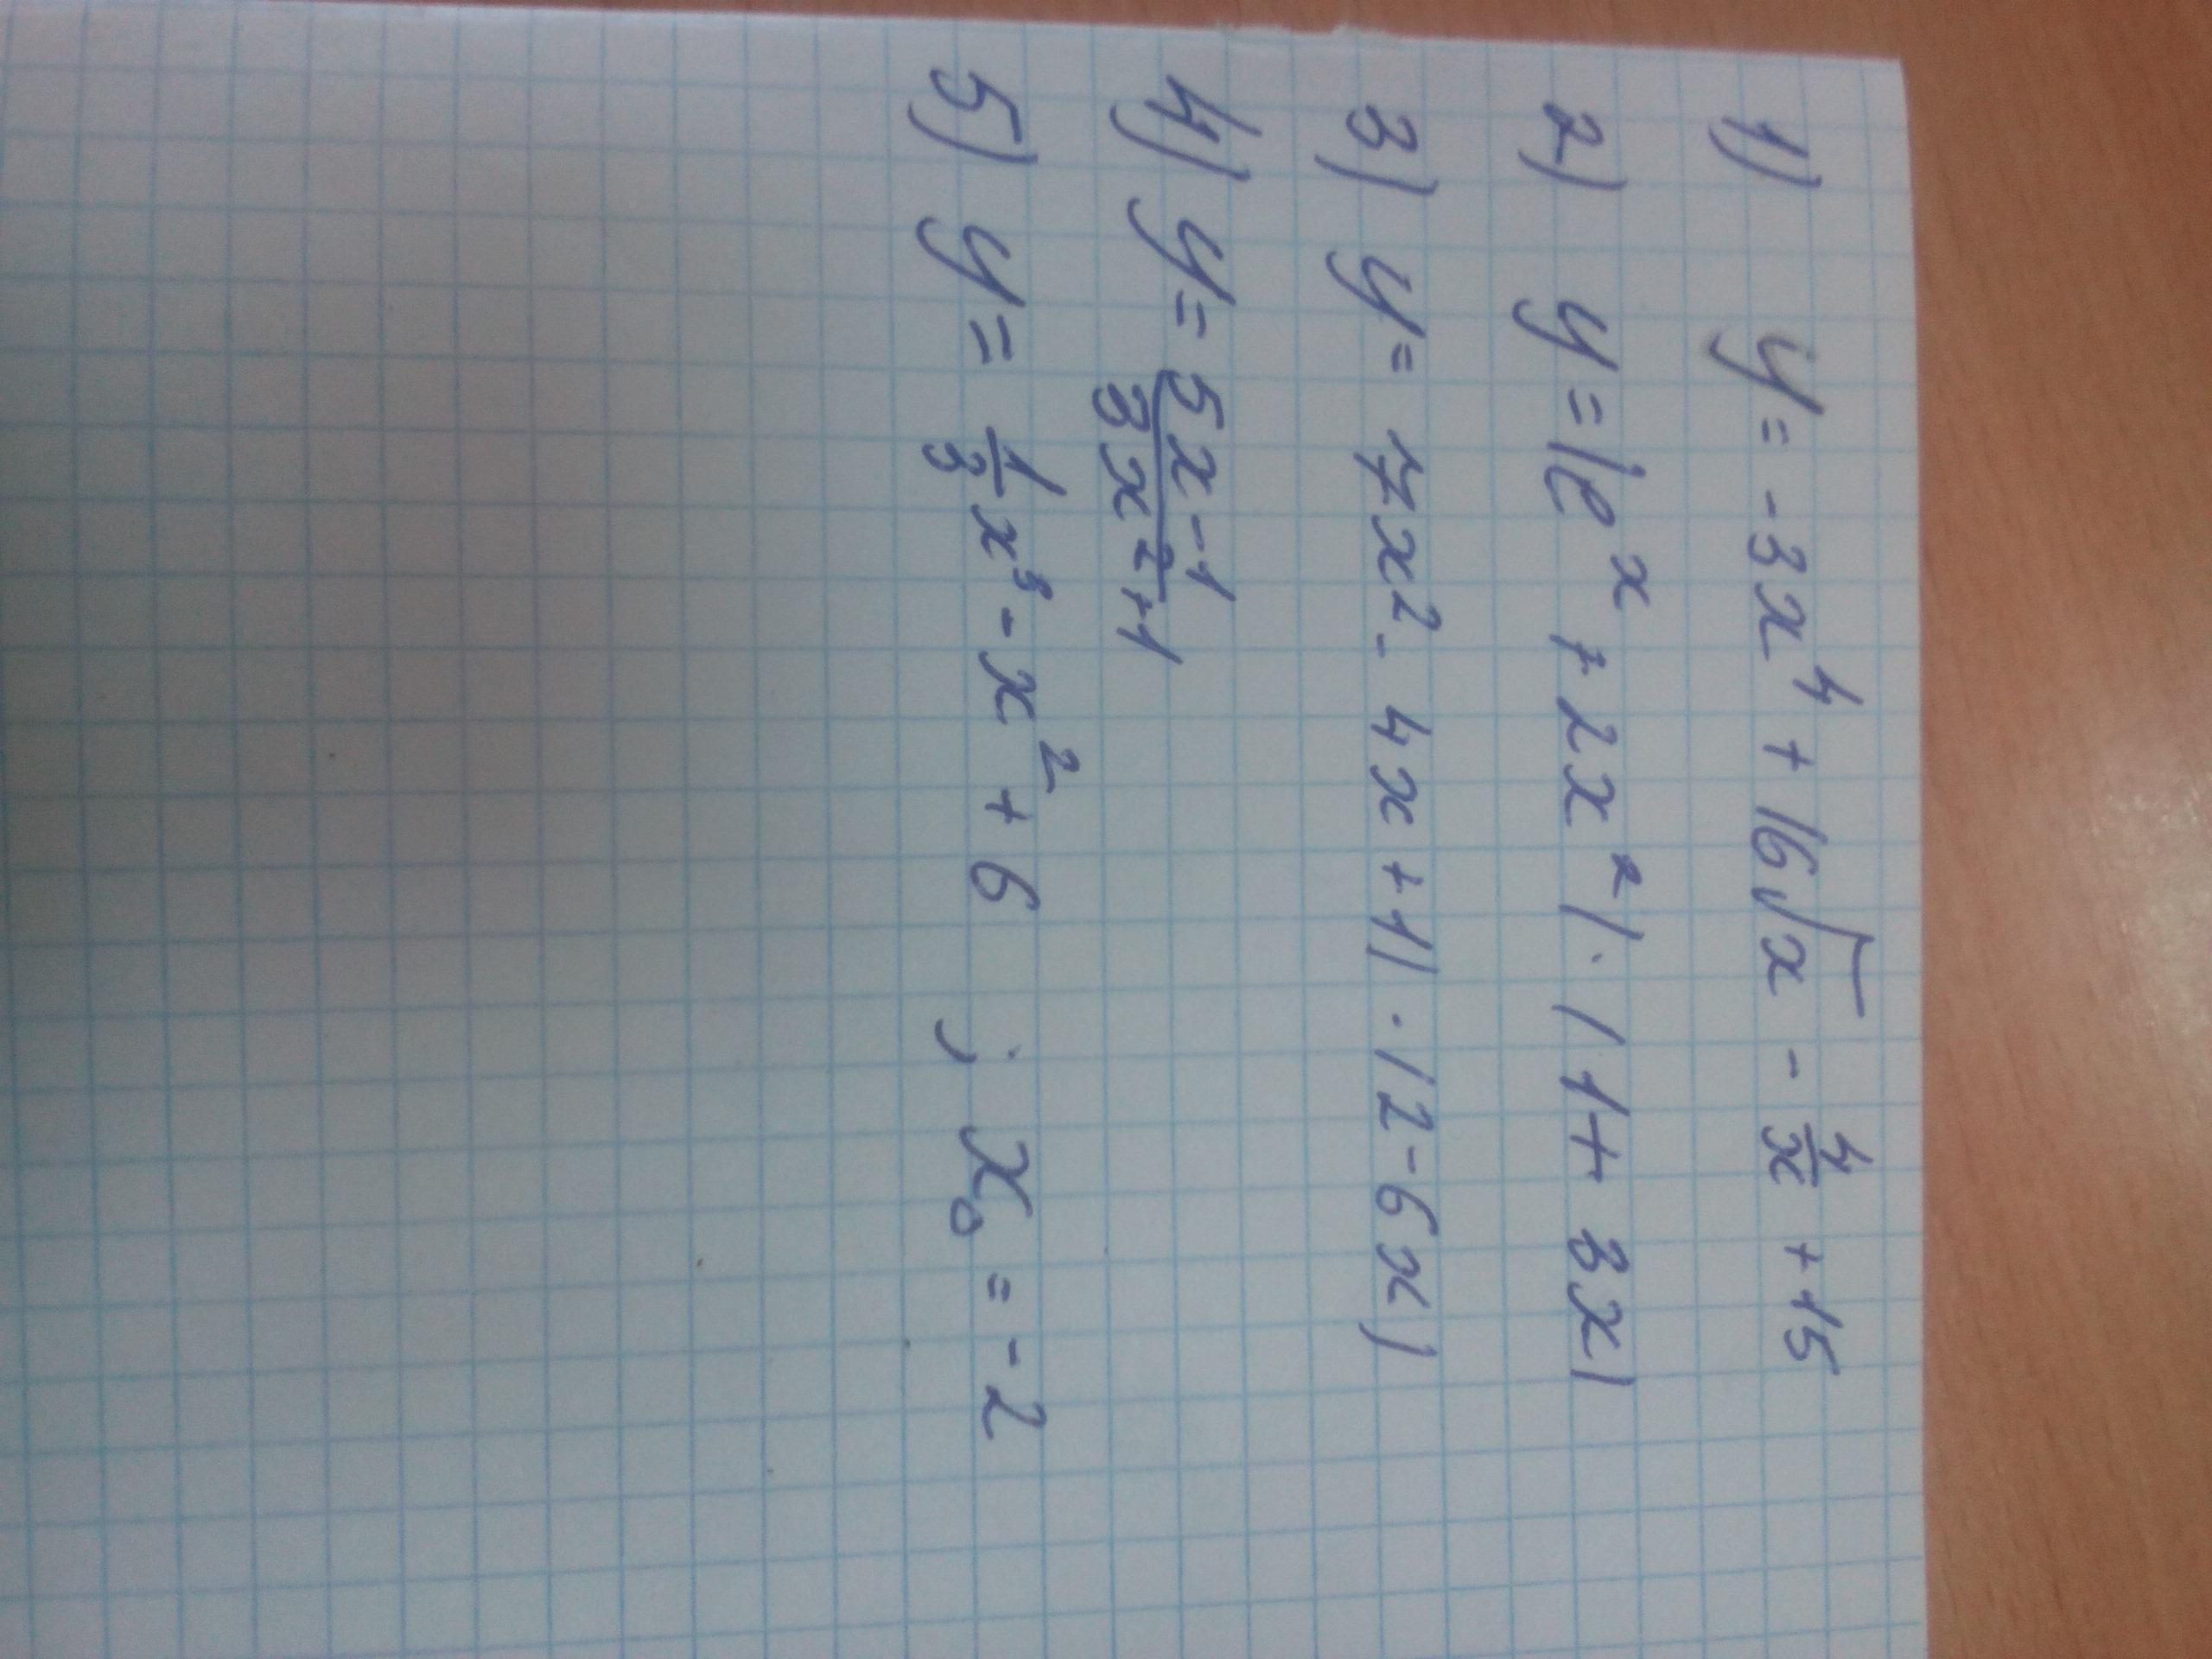 1) y = -3x⁴ + 16√x - 4/x + 15
2) y = (e^x + 2x²) · (1 + 3x)
3) y = 7x² - 4x + 1) · (2 - 6x)
4) y = (5x - 1)/(3x² + 1)
5) y = 1/3 x³ - x² + 6 ; x₀ = -2